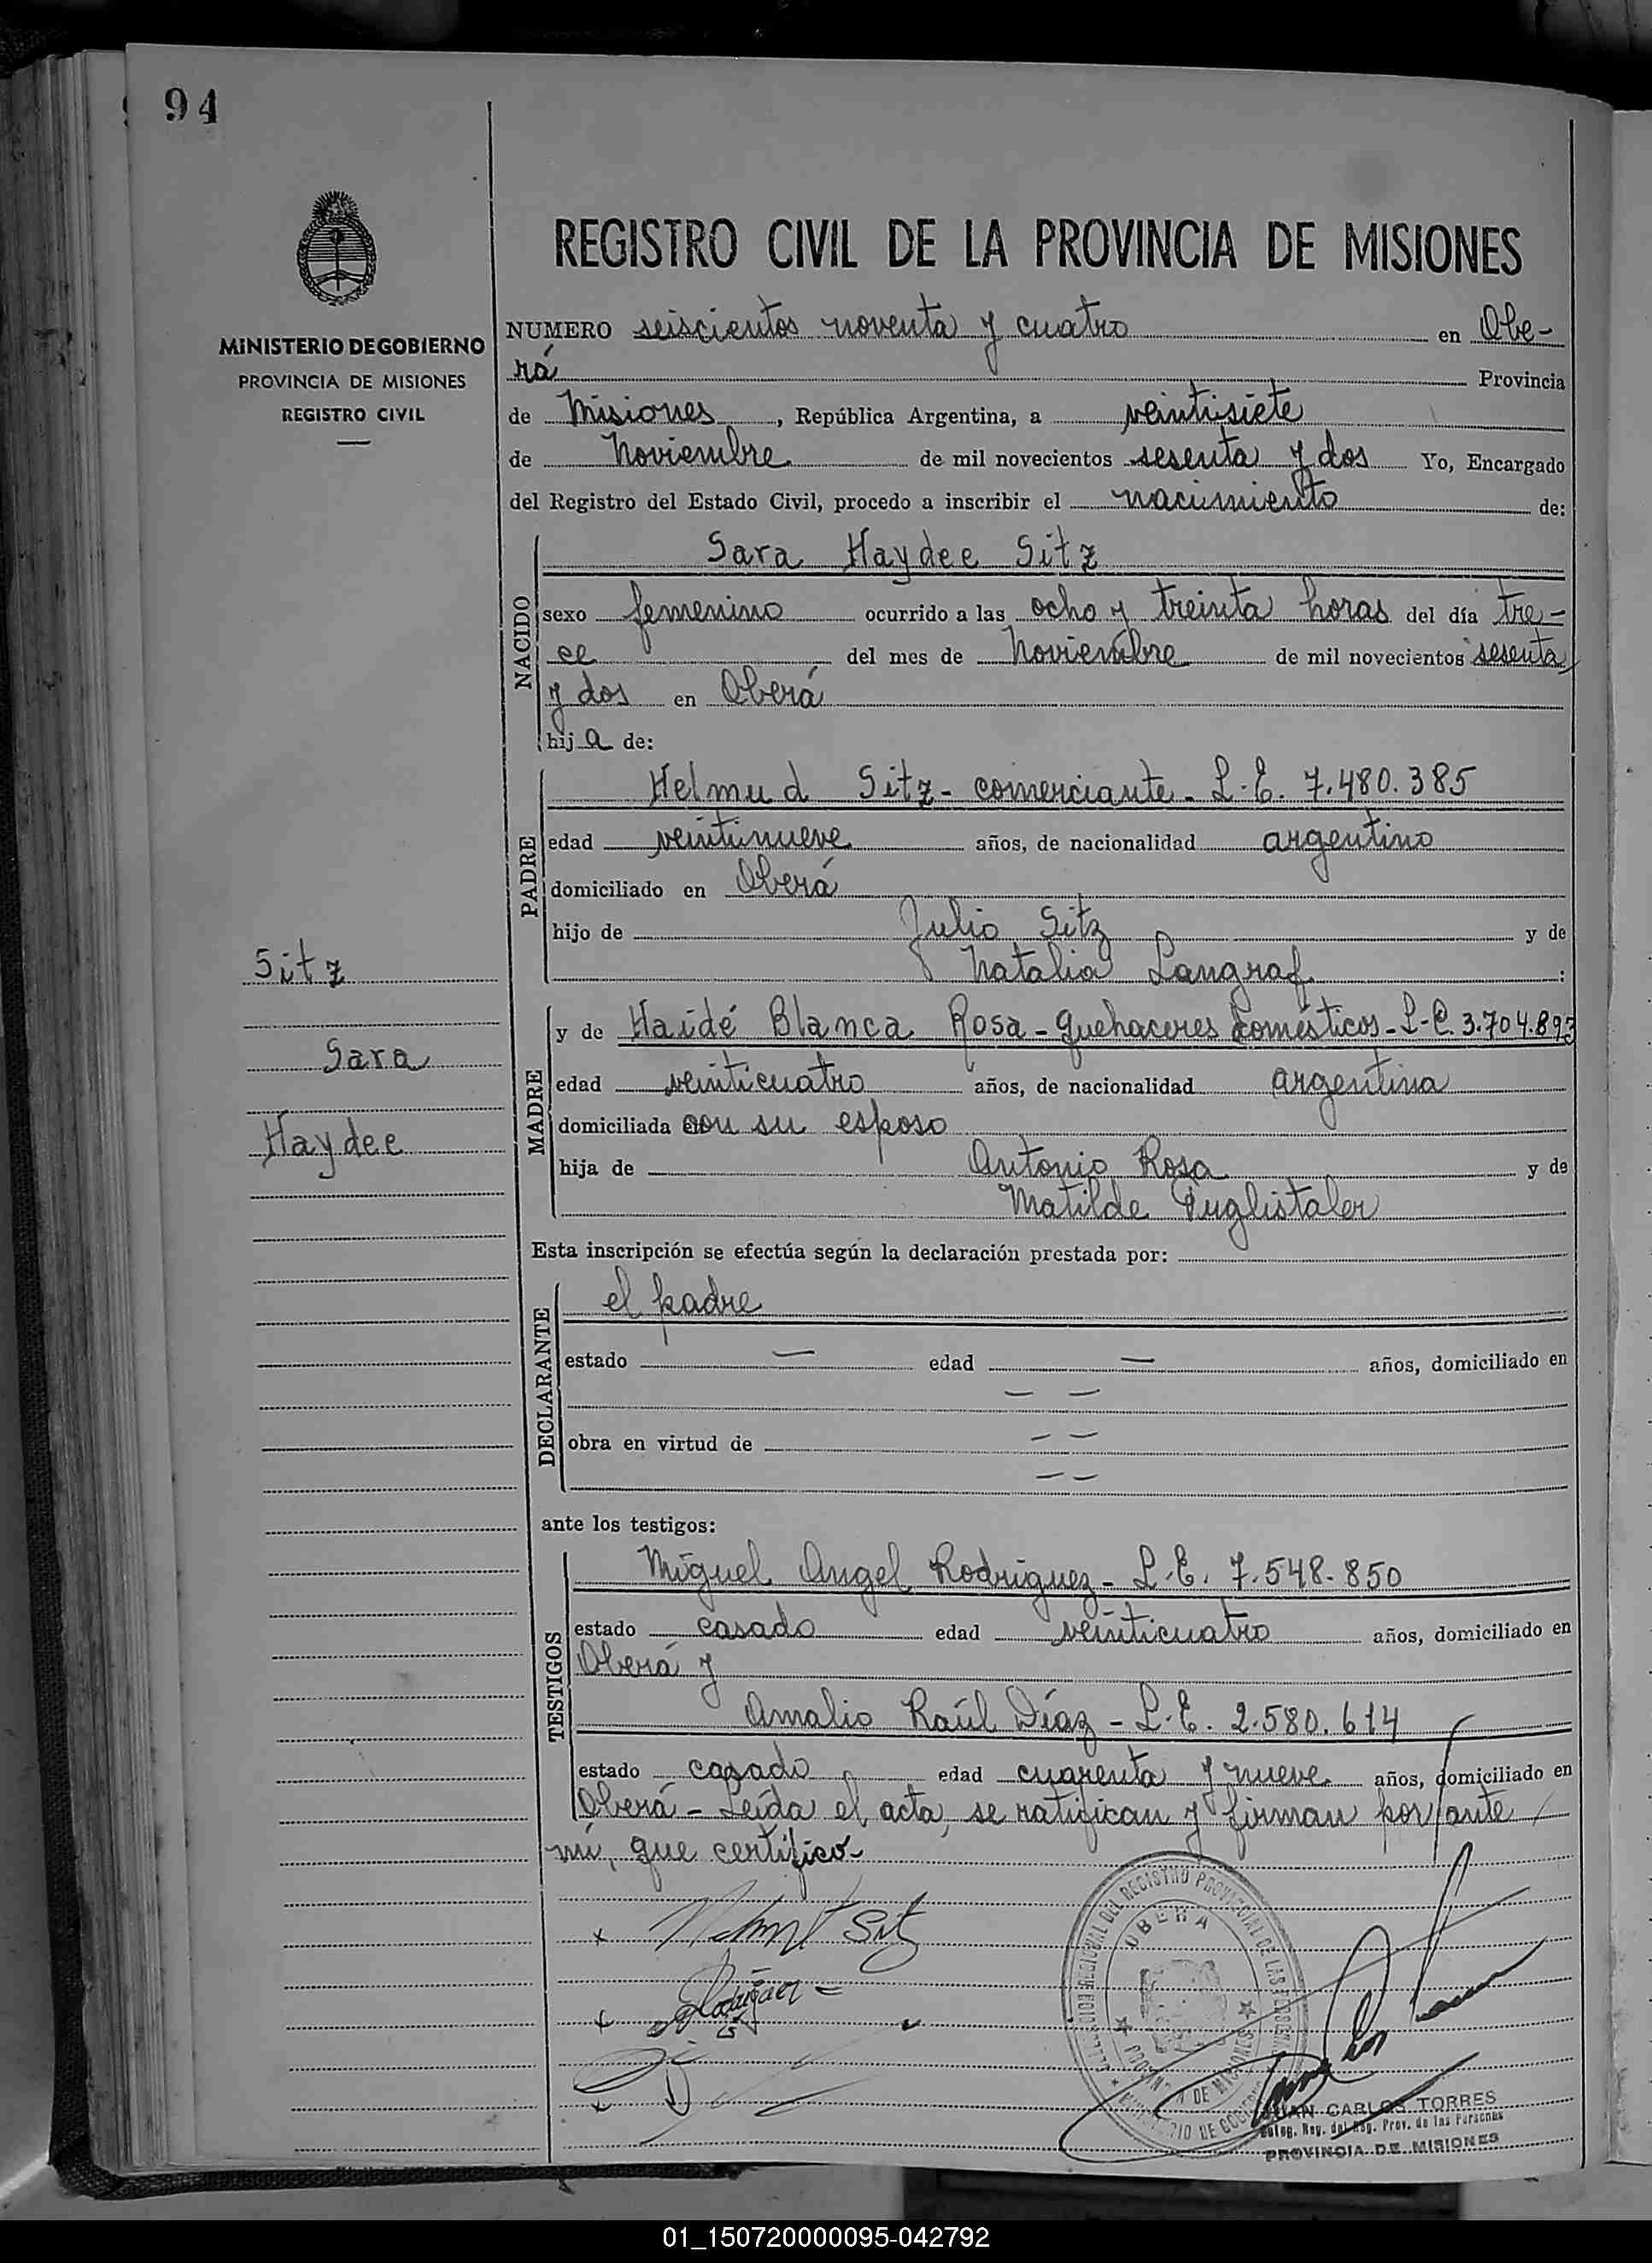 94
REGISTRO CIVIL DE LA PROVINCIA DE MISIONES
MINISTERIO DE GOBIERNO
PROVINCIA DE MISIONES
REGISTRO CIVIL
NUMERO seiscientos noventa y cuatro en Obe-
rá Provincia
de Misiones, República Argentina, a veintisiete
de Noviembre de mil novecientos sesenta y dos Yo, Encargado
del Registro del Estado Civil, procedo a inscribir el nacimiento de:
NACIDO
Sara Haydee Sitz
sexo femenino ocurrido a las ocho y treinta horas del día tre-
ce del mes de Noviembre de mil novecientos sesenta
y dos en Oberá
hija de:
PADRE
Helmud Sitz - comerciante - L.E. 7.480.385
edad veintinueve años, de nacionalidad argentino
domiciliado en Oberá
hijo de Julio Sitz y de
Natalia Langraf :
Sitz
Sara
Haydee
MADRE
y de Haidé Blanca Rosa - quehaceres domésticos - L-C. 3.704.893
edad veinticuatro años, de nacionalidad argentina
domiciliada con su esposo
hija de Antonio Rosa y de
Matilde
Esta inscripción se efectúa según la declaración prestada por:
DECLARANTE
el padre
estado — edad — años, domiciliado en
— —
obra en virtud de — —
— —
ante los testigos:
TESTIGOS
Miguel Angel Rodriguez - L.E. 7.548.850
estado casado edad veinticuatro años, domiciliado en
Oberá y
Amalio Raúl Díaz - L.E. 2.580.614
estado casado edad cuarenta y nueve años, domiciliado en
Oberá - Leída el acta, se ratifican y firman por ante
mí, que certifico-
Sitz
OBERA
PROVINCIA DE MISIONES
JUAN CARLOS TORRES
Deleg. Reg. del Reg. Prov. de las Personas
PROVINCIA DE MISIONES
01_150720000095-042792